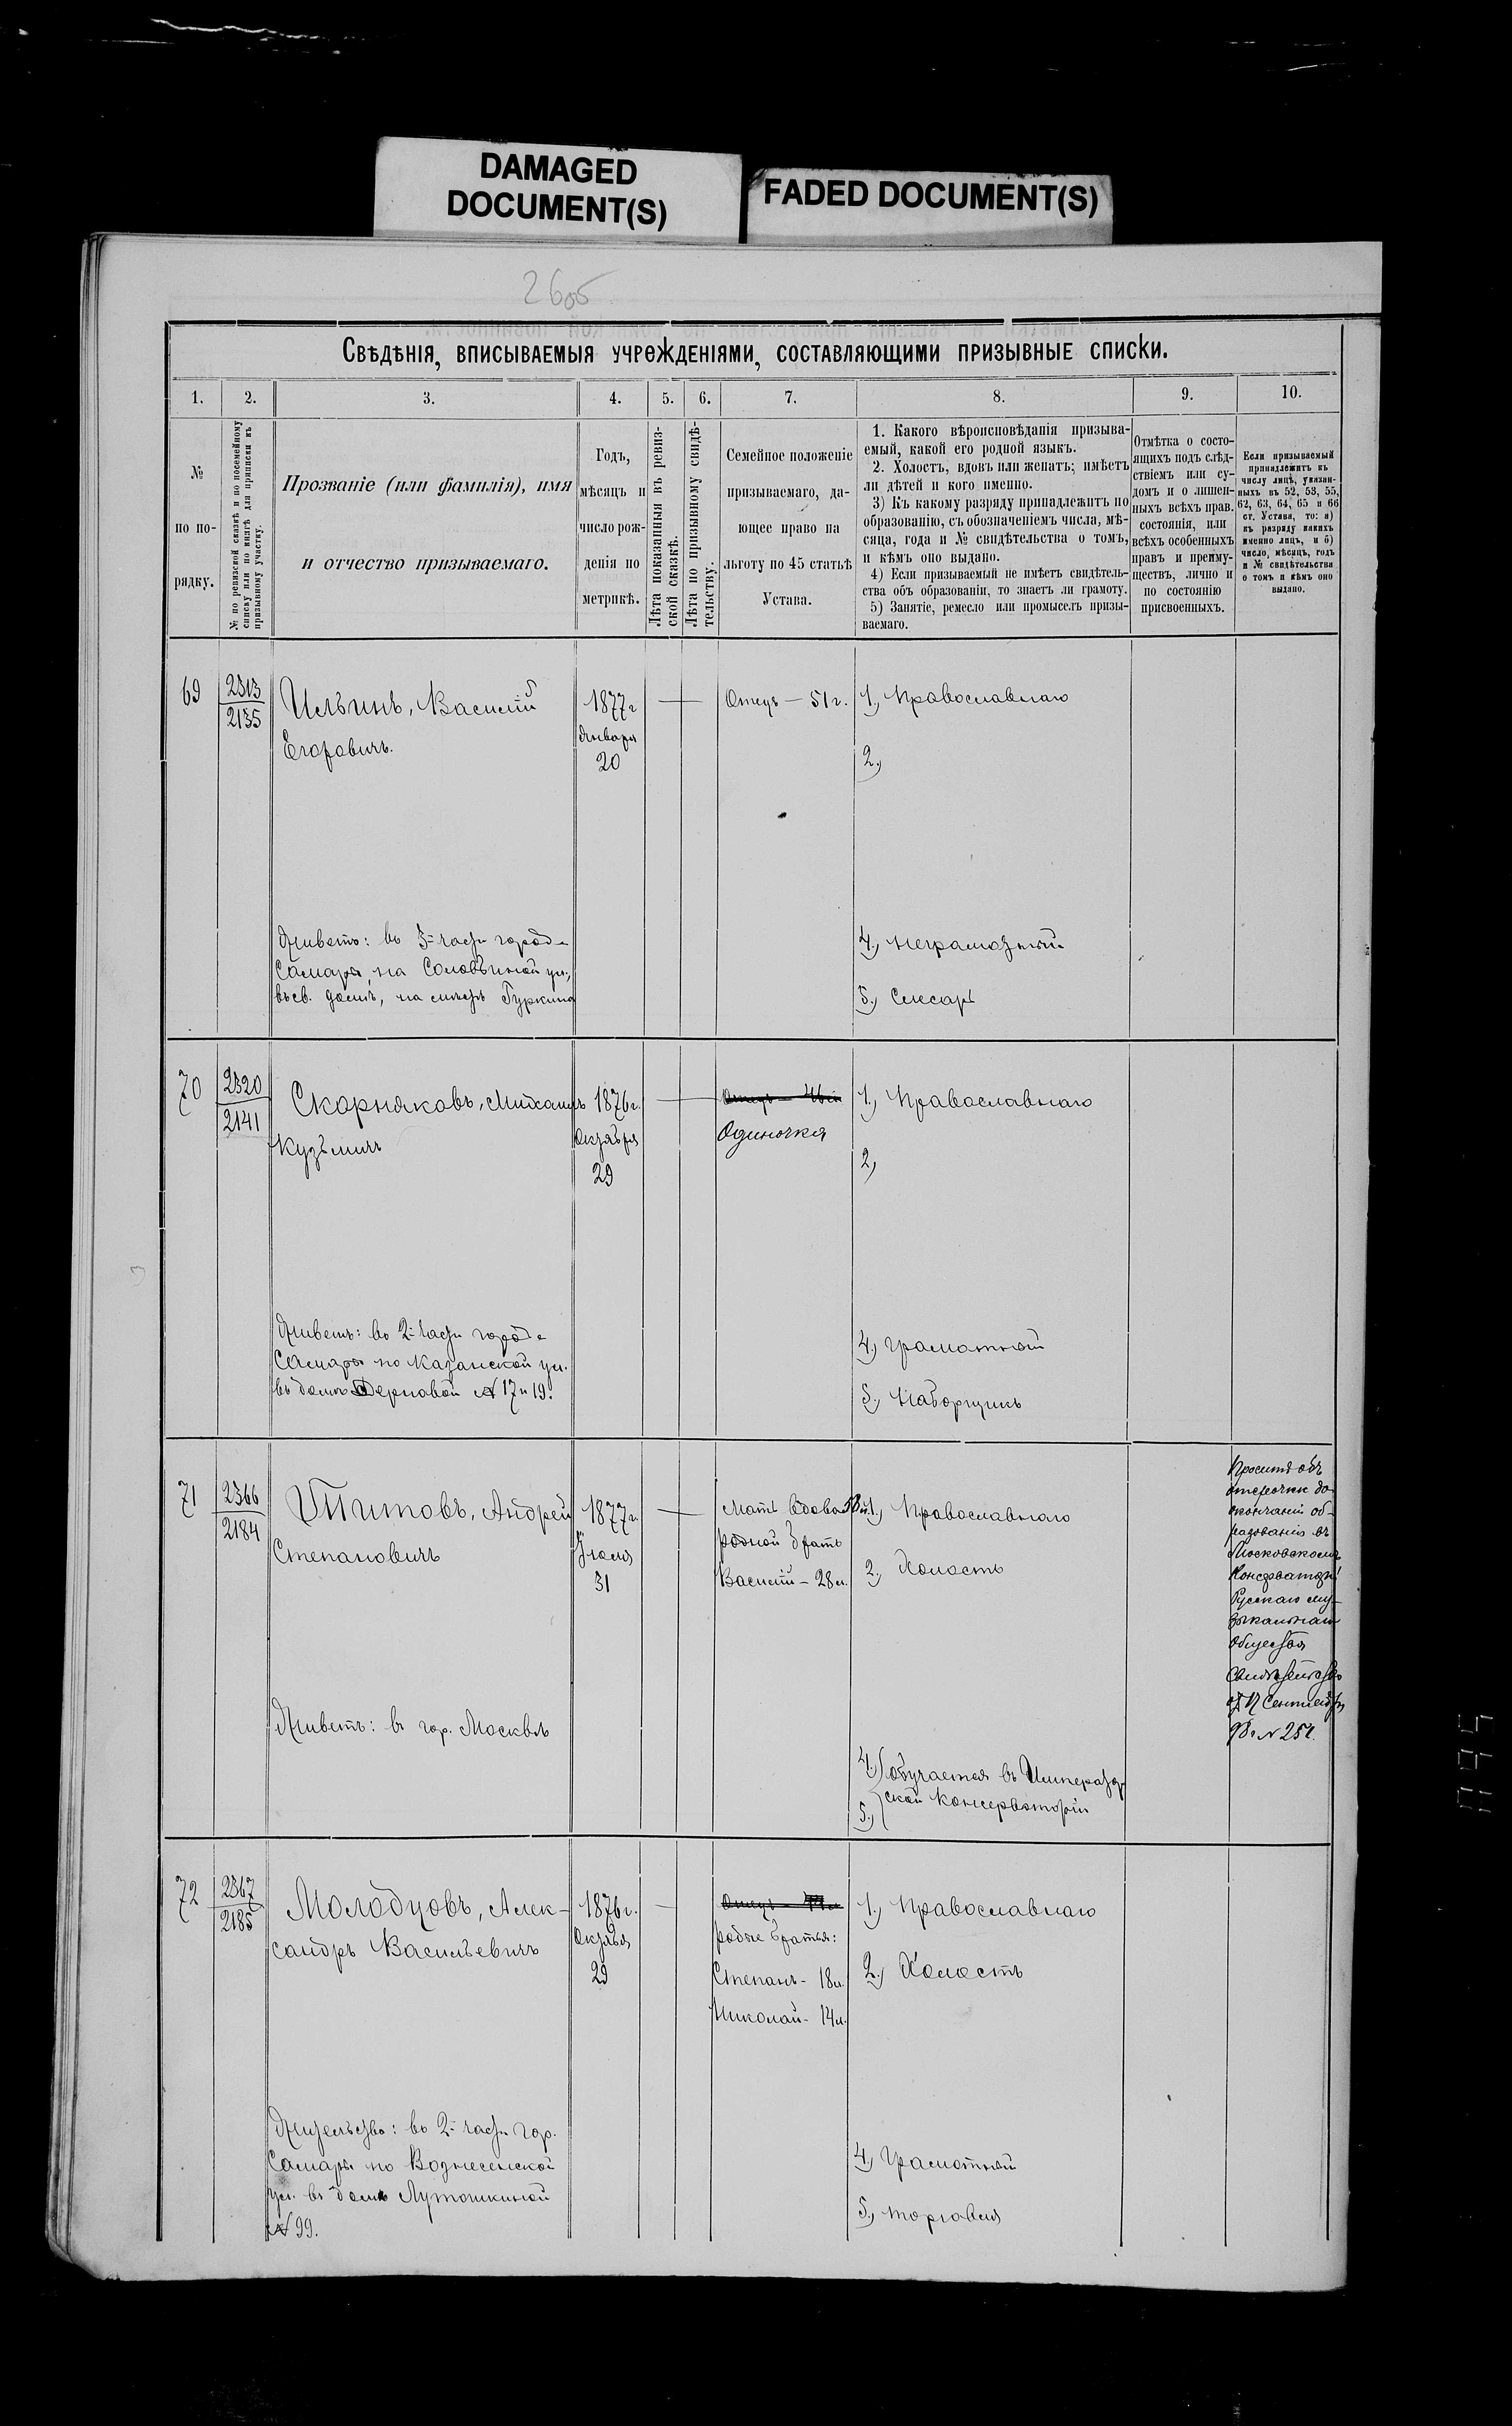 DAMAGED
DOCUMENT(S)
FADED DOCUMENT(S)
2605
Свѣдѣнія, вписываемыя учрежденіями, составляющими призывные списки.
1.
2.
3.
4.
5.
6.
7.
8.
9.
10.
№
по по-
рядку.
№ по ревизской сказкѣ и по посемейному
списку или по книгѣ для приписки къ
призывному участку.
Прозваніе (или фамилія), имя
и отчество призываемаго.
Годъ,
мѣсяцъ и
число рож-
денія по
метрикѣ.
Лѣта показанныя въ ревиз-
ской сказкѣ.
Лѣта по призывному свидѣ-
тельству.
Семейное положеніе
призываемаго, да-
ющее право на
льготу по 45 статьѣ
Устава.
1. Какого вѣроисповѣданія призыва-
емый, какой его родной языкъ.
2. Холостъ, вдовъ или женатъ; имѣетъ
ли дѣтей и кого именно.
3) Къ какому разряду принадлежитъ по
образованію, съ обозначеніемъ числа, мѣ-
сяца, года и № свидѣтельства о томъ,
и кѣмъ оно выдано.
4) Если призываемый не имѣетъ свидѣтель-
ства объ образованіи, то знаетъ ли грамоту.
5) Занятіе, ремесло или промыселъ призы-
ваемаго.
Отмѣтка о состо-
ящихъ подъ слѣд-
ствіемъ или су-
домъ и о лишен-
ныхъ всѣхъ прав.
состоянія, или
всѣхъ особенныхъ
правъ и преиму-
ществъ, лично и
по состоянію
присвоенныхъ.
Если призываемый
принадлежитъ къ
числу лицъ, указан-
ныхъ въ 52, 53, 55,
62, 63, 64, 65 и 66
ст. Устава, то: а)
къ разряду какихъ
именно лицъ, и б)
число, мѣсяцъ, годъ
и № свидѣтельства
о томъ и кѣмъ оно
выдано.
69
2313
2135
Ильинъ, Василій
Егоровичъ.
1877г
Января
20
Отецъ — 51 г.
1., Православнаго
2.,
Живетъ: во 3й части города
Самары, на Соловьиной ул.,
въ св. домѣ, на
4., неграмотный
5., Слесарь
70
2320
2141
Скорняковъ, Михаилъ
Кузьмичъ
1876г.
Октября
29
Отецъ — 46 л
Одиночка
1., Православнаго
2,
Живетъ: во 2й части города
Самары по Казанской ул.
въ домѣ № 17 и 19.
4., грамотный
5., Наборщикъ
71
2366
2184
Титовъ, Андрей
Степановичъ
1877г.
Іюля
31
Мать вдова
родной братъ
Василій — 28 л.
1., Православнаго
2., Холостъ
Проситъ объ
отсрочки до
окончанія об-
разованія въ
Московском
Консерваторіи
Русскаго Му-
зыкальнаго
общества
Свидѣтельство
Сентября
№ 251.
Живетъ: въ гор. Москвѣ
4.) обучается въ Император-
ской Консерваторіи
5.)
72
2367
2185
Молодцовъ, Алек-
сандръ Васильевичъ
1876г.
Октября
29
Отецъ
родные братья:
Степанъ - 18 л.
Николай - 14 л.
1., Православнаго
2., Холостъ
Жительство: во 2й части гор.
Самары по Вознесенской
ул. въ домѣ Лутошкиной
№ 99.
4., Грамотный
5., торговля